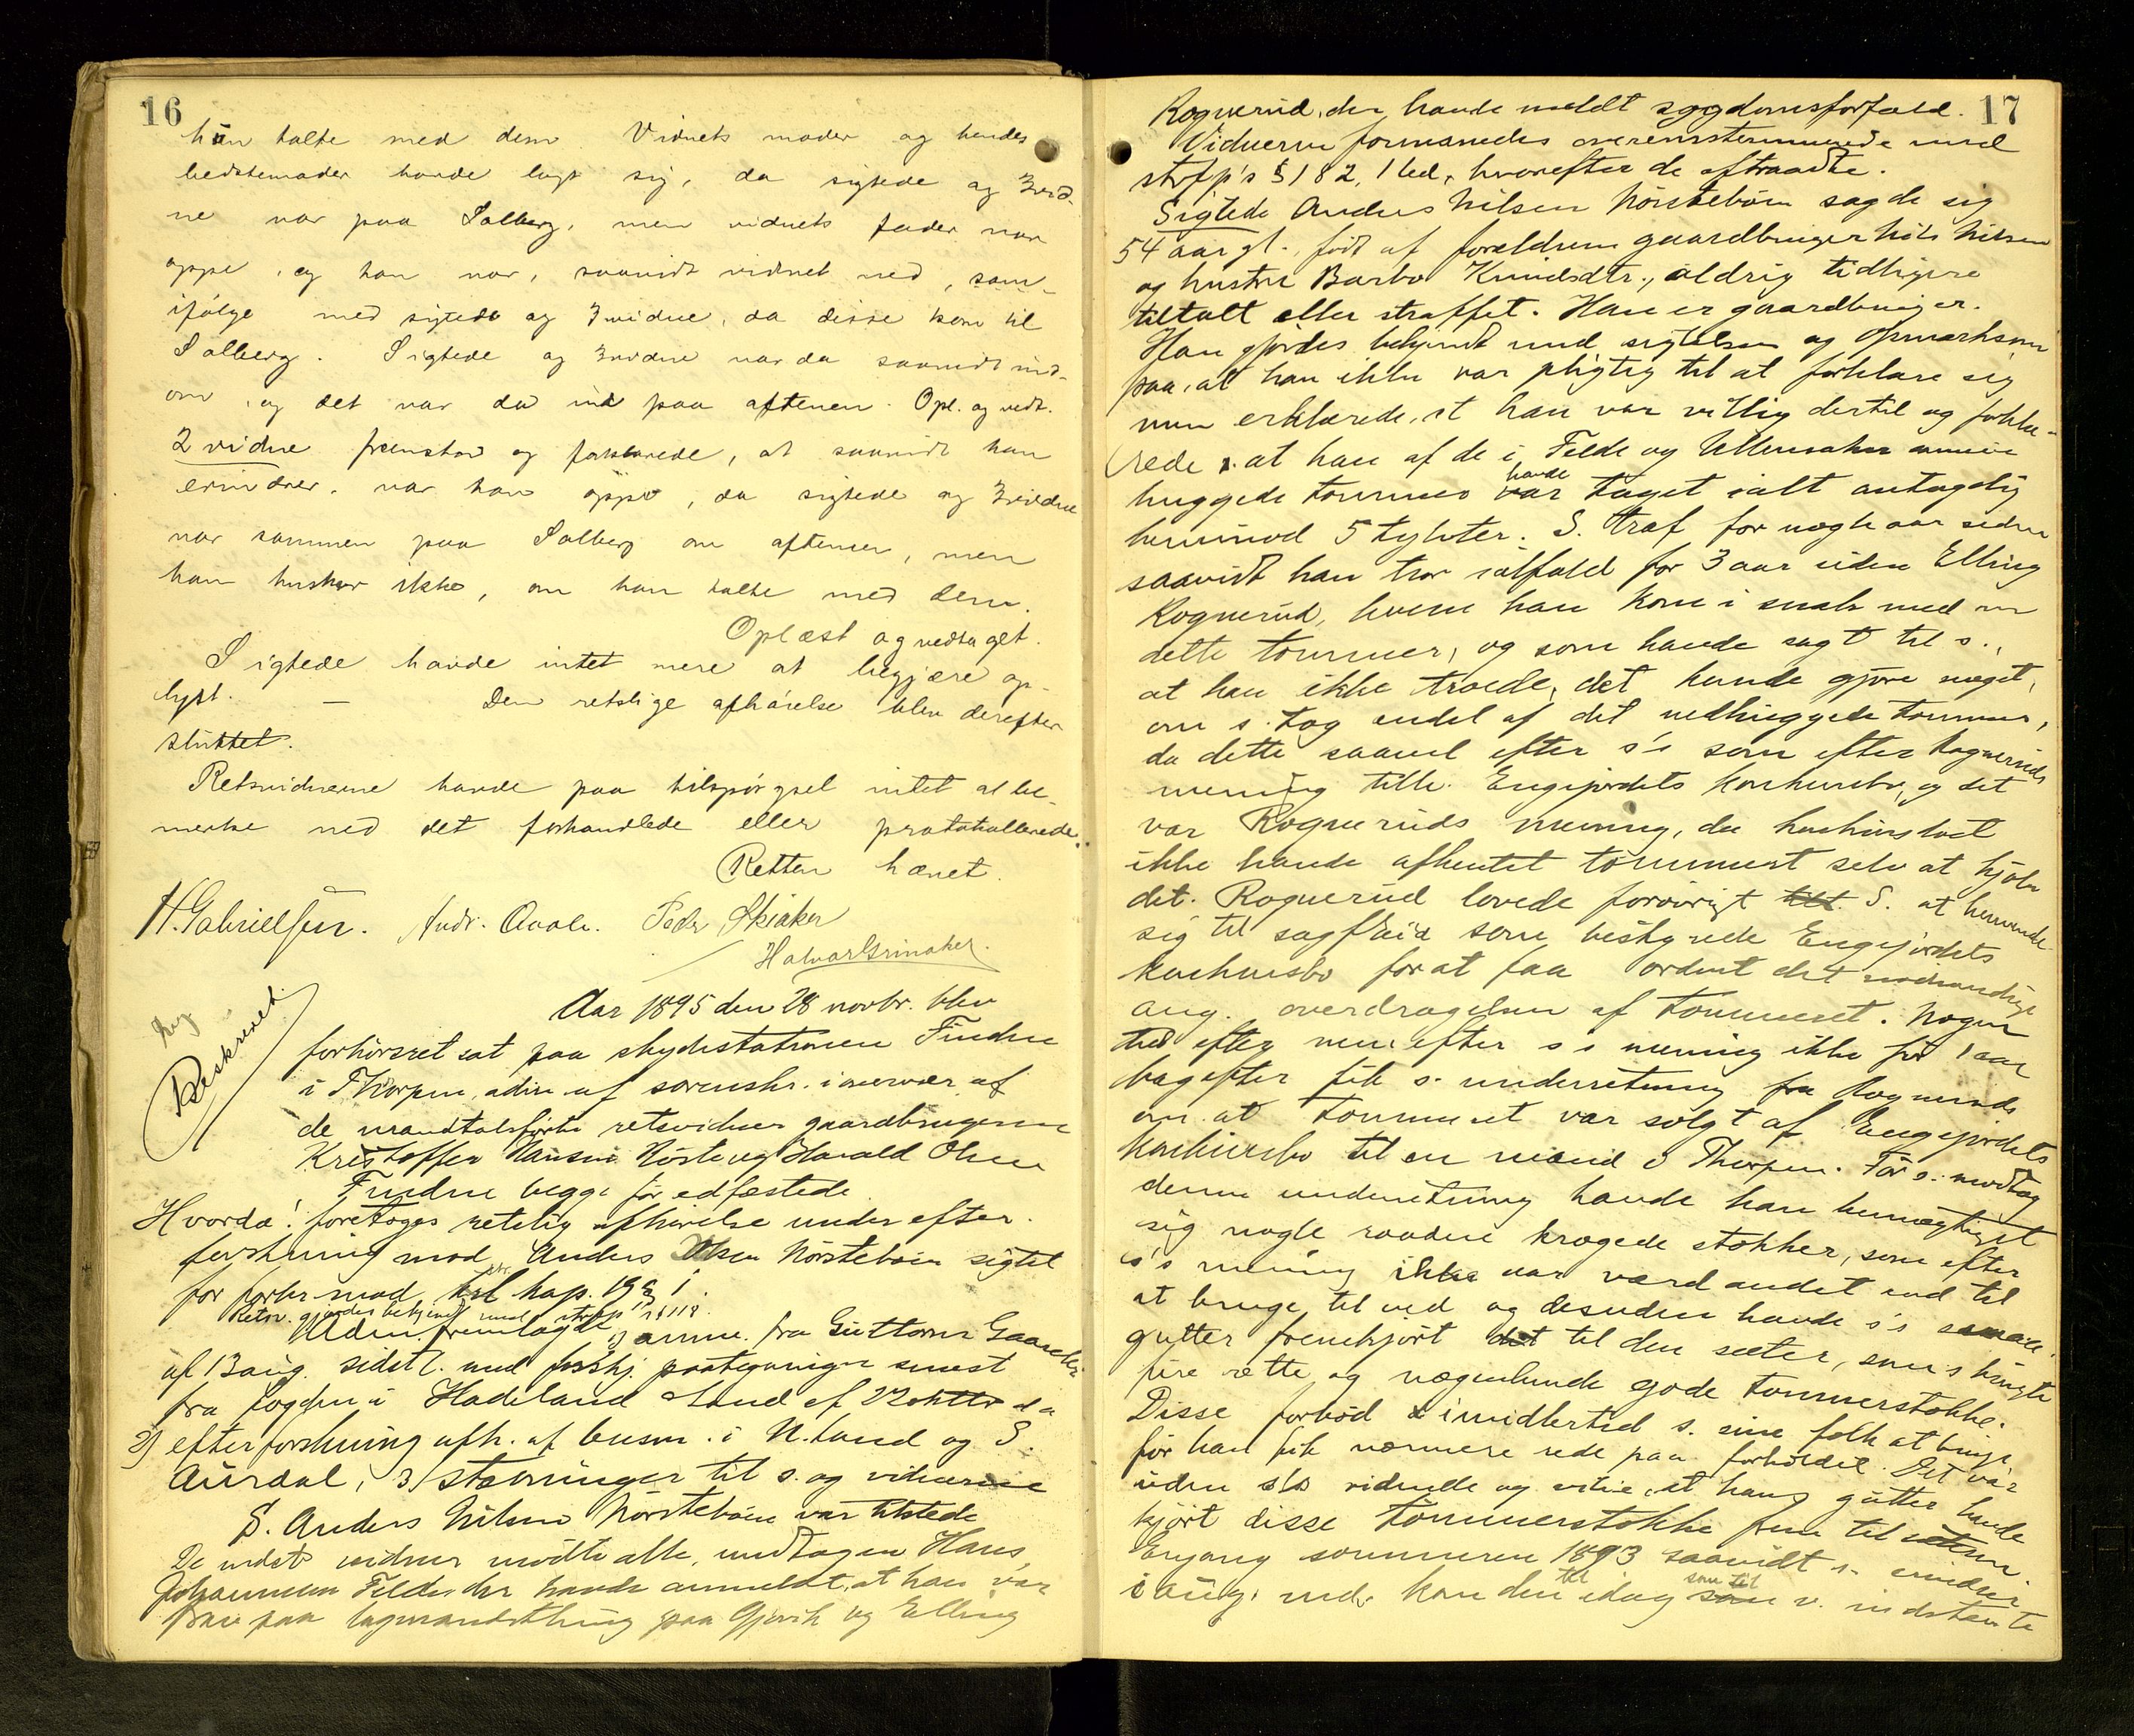 16
han talte med dem. Vidnets moder og hendes
bedstemoder havde lagt sig, da sigtede og 3 vid-
ne var paa Solberg, men vidnets fader var
oppe, og han var, saavidt vidnet ved, sam-
ifølge med sigtede og 3 vidne, da disse kom til
Solberg. Sigtede og 3 vidne var da saavidt ind-
om, og det var da ud paa aftenen. Opl. og vedt.
2 vidne fremstod og forklarede, at saavidt han
erindrer, var han oppe, da sigtede og 3 vidne
var sammen paa Solberg om aftenen, men
han husker ikke, om han talte med dem.
Oplæst og vedtaget.
Sigtede havde intet mere at begjære op-
lyst. — Den retslige afhørelse blev derefter
sluttet.
Retsvidnerne havde paa tilspørgsel intet at be-
merke ved det forhandlede eller protokollerede.
Retten hævet.
H. Gabrielsen. Andr. Peder Skiaker
Halvor Grinaker.
Beskrevet.
Aar 1895 den 28 novbr. blev
forhørsret sat paa skydsstationen Finden
i Thorpen, adm. af sorenskr. i overvær af
de mandtalsførte retsvidner gaardbrugerne
Kristoffer Hansen Høste og Harald Olsen
Finden begge før edfæstede.
Hvorda! foretoges retslig afhørelse under efter-
forskning mod Anders Nørstebøen sigtet
for forbr. mod kap. 19
Retsv. gjordes bekjendt med strfpl's § 118.
Adm. fremlagde 1) anm. fra Guttorm
af 13 aug. sidstl. med forskj. paategninger senest
fra fogden i Hadeland Land af 22 oktbr d. a
2) efterforskning afh. af lensm. i N. Land og S.
Aurdal, 3) stevninger til s. og vidnerne
S. Anders Nilsen Nørstebøen var tilstede
De indst. vidner mødte alle, undtagen Hans
Johannesen Felde, der havde anmeldt, at han var
paa lagmandsthing paa Gjøvik og Elling
17
Rognerud, der havde meldt sygdomsforfald.
Vidnerne formanedes overensstemmende med
strfp's § 182, 1 led, hvorefter de aftraadte.
Sigtede Anders Nilsen Nørstebøen sagde sig
54 aar gl., født af forældrene gaardbruger Nils Nilsen
og hustru Barbo Knudsdtr., aldrig tidligere
tiltalt eller straffet. Han er gaardbruger.
Han gjordes bekjendt med sigtelsen og opmærksom
paa, at han ikke var pligtig til at forklare sig
men erklærede, at han var villig dertil og forkla-
rede: at han af de i Felde og Ullensaker
havde
huggede tømmer var taget ialt antagelig
henimod 5 tylvter. S. traf for nogle aar siden
saavidt han tror ialfald for 3 aar siden Elling
Rognerud, hvem han kom i snak med om
dette tømmer, og som havde sagt til s.,
at han ikke troede, det kunde gjøre noget,
om s. tog endel af det nedhuggede tømmer,
da dette saavel efter s's som efter Rogneruds
mening tilh. Engejordets konkursbo, og det
var Rogneruds mening, da konkursboet
ikke havde afhentet tømmeret selv at kjøbe
det. Rognerud lovede forøvrigt S. at henvende
sig til sagfører som bestyrede Engejordets
konkursbo forat faa ordnet det nødvendige
ang. overdragelsen af tømmeret. Nogen
tid efter men efter s's mening ikke før 1 aar
bagefter fik s. underretning fra Rognerud
om at tømmeret var solgt af Engejordets
konkursbo til en mand i Thorpen. Før s. modtog
denne underretning havde han bemægtiget
sig nogle raadne krogede stokker, som efter
s's mening ikke var værd andet end til
at bruge til ved og desuden havde s's
gutter fremkjørt det til den sæter, som s. brugte
fire rette og nogenlunde gode tømmerstokke.
Disse forbød imidlertid s. sine folk at bruge
før han fik nærmere rede paa forholdet. Det var
uden s's vidende og vilje, at hans gutter havde
kjørt disse tømmerstokke frem til
Engang sommeren 1893 saavidt s. erindrer
til som til
i aug. md. kom den idag som v. indstevnte